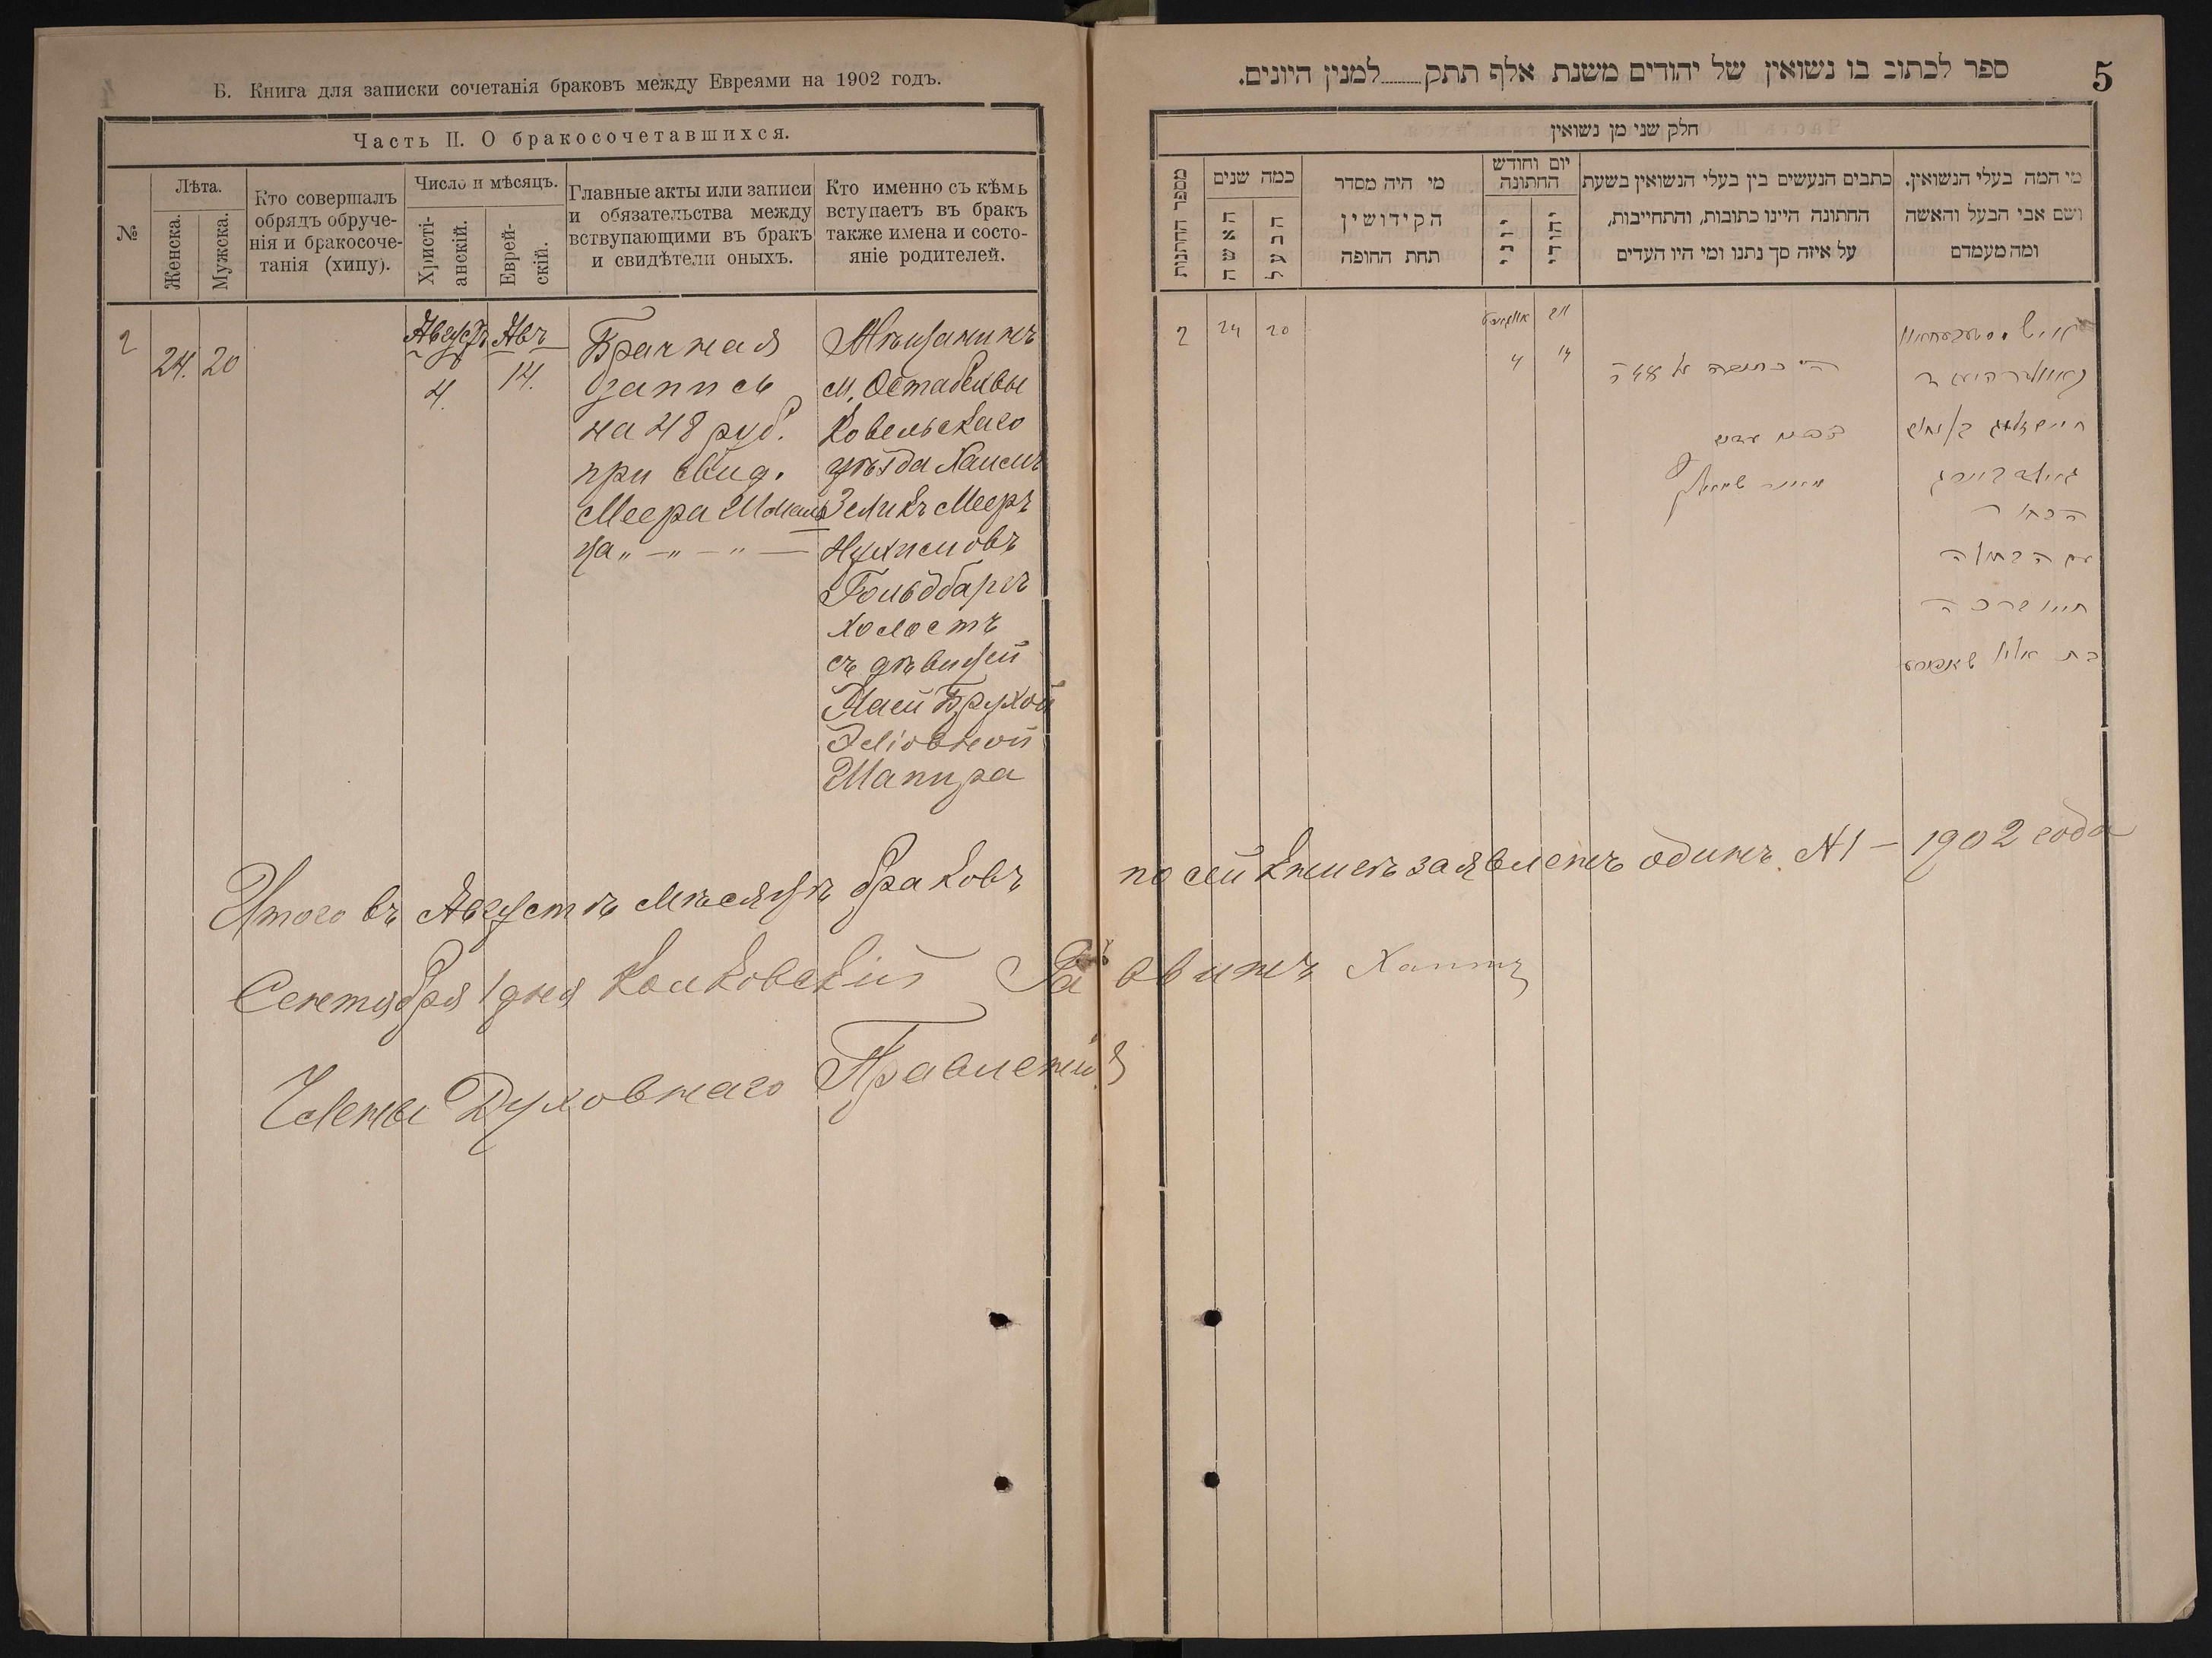 Б. Книга для записки сочетанія браковъ между Евреями на 1902 годъ.
Часть II. О бракосочетавшихся.
№
Лѣта.
Женска.
Мужска.
Кто совершалъ
обрядъ обруче-
нія и бракосоче-
танія (хипу).
Число и мѣсяцъ.
Христі-
анскій.
Еврей-
скій.
Главные акты или записи
и обязательства между
вствупающими въ бракъ
и свидѣтели оныхъ.
Кто именно съ кѣмъ
вступаетъ въ бракъ
также имена и состо-
яніе родителей.
2
24. 20
Августъ
4.
Авъ
14.
Брачная
запись
на 48 руб.
при свид.
Меера Шмаи
Мѣщанинъ
м.
Ковельскаго
уѣзда Хаимъ
Зеликъ Мееръ
Нухимовъ
Гольдбаргъ
холостъ
съ дѣвицей
Хаей Брухой
Эліовной
Шапира
Итого въ Августѣ мѣсяцѣ браковъ по сей книгѣ заявленъ одинъ №1 - 1902 года
Сентября 1 дня Колковскій Раввинъ
Члены Духовнаго Правленія
5
ספר לכתוב בו נשואין של יהודים משנת אלף תתק........למנין היונים.
חלק שני מן נשואין
מספר החתונות
כמה שנים
האשה
הבעל
מי היה מסדר
הקידושין
תחת החופה
יום וחודש
החתונה
יוני
יהודי
כתבים הנעשים בין בעלי הנשואין בשעת
החתונה היינו כתובות, והתחייבות,
על איזה סך נתנו ומי היו העדים
מי המה בעלי הנשואין.
ושם אבי הבעל והאשה
ומה מעמדם
2
24
20
4
14
הבחור
עם הבתולה